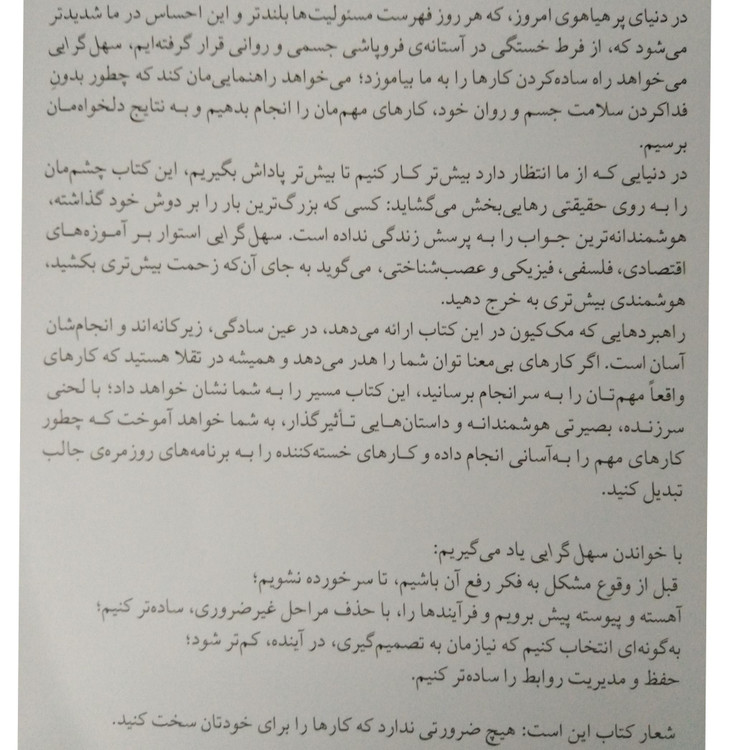 در دنیای پرهیاهوی امروز، که هر روز فهرست مسئولیت‌ها بلندتر و این احساس در ما شدیدتر
می‌شود که، از فرط خستگی در آستانه‌ی فروپاشی جسمی و روانی قرار گرفته‌ایم، سهل‌گرایی
می‌خواهد راه ساده‌کردن کارها را به ما بیاموزد؛ می‌خواهد راهنمایی‌مان کند که چطور بدونِ
فداکردن سلامت جسم و روان خود، کارهای مهم‌مان را انجام بدهیم و به نتایج دلخواه‌مان
برسیم.
در دنیایی که از ما انتظار دارد بیش‌تر کار کنیم تا بیش‌تر پاداش بگیریم، این کتاب چشم‌مان
را به روی حقیقتی رهایی‌بخش می‌گشاید: کسی که بزرگ‌ترین بار را بر دوش خود گذاشته،
هوشمندانه‌ترین جواب را به پرسش زندگی نداده است. سهل‌گرایی استوار بر آموزه‌های
اقتصادی، فلسفی، فیزیکی و عصب‌شناختی، می‌گوید به جای آن‌که زحمت بیش‌تری بکشید،
هوشمندی بیش‌تری به خرج دهید.
راهبردهایی که مک‌کیون در این کتاب ارائه می‌دهد، در عین سادگی، زیرکانه‌اند و انجام‌شان
آسان است. اگر کارهای بی‌معنا توان شما را هدر می‌دهد و همیشه در تقلا هستید که کارهای
واقعاً مهم‌تان را به سرانجام برسانید، این کتاب مسیر را به شما نشان خواهد داد؛ با لحنی
سرزنده، بصیرتی هوشمندانه و داستان‌هایی تأثیرگذار، به شما خواهد آموخت که چطور
کارهای مهم را به‌آسانی انجام داده و کارهای خسته‌کننده را به برنامه‌های روزمره‌ی جالب
تبدیل کنید.
با خواندن سهل‌گرایی یاد می‌گیریم:
قبل از وقوع مشکل به فکر رفع آن باشیم، تا سرخورده نشویم؛
آهسته و پیوسته پیش برویم و فرآیندها را، با حذف مراحل غیرضروری، ساده‌تر کنیم؛
به‌گونه‌ای انتخاب کنیم که نیازمان به تصمیم‌گیری، در آینده، کم‌تر شود؛
حفظ و مدیریت روابط را ساده‌تر کنیم.
شعار کتاب این است: هیچ ضرورتی ندارد که کارها را برای خودتان سخت کنید.